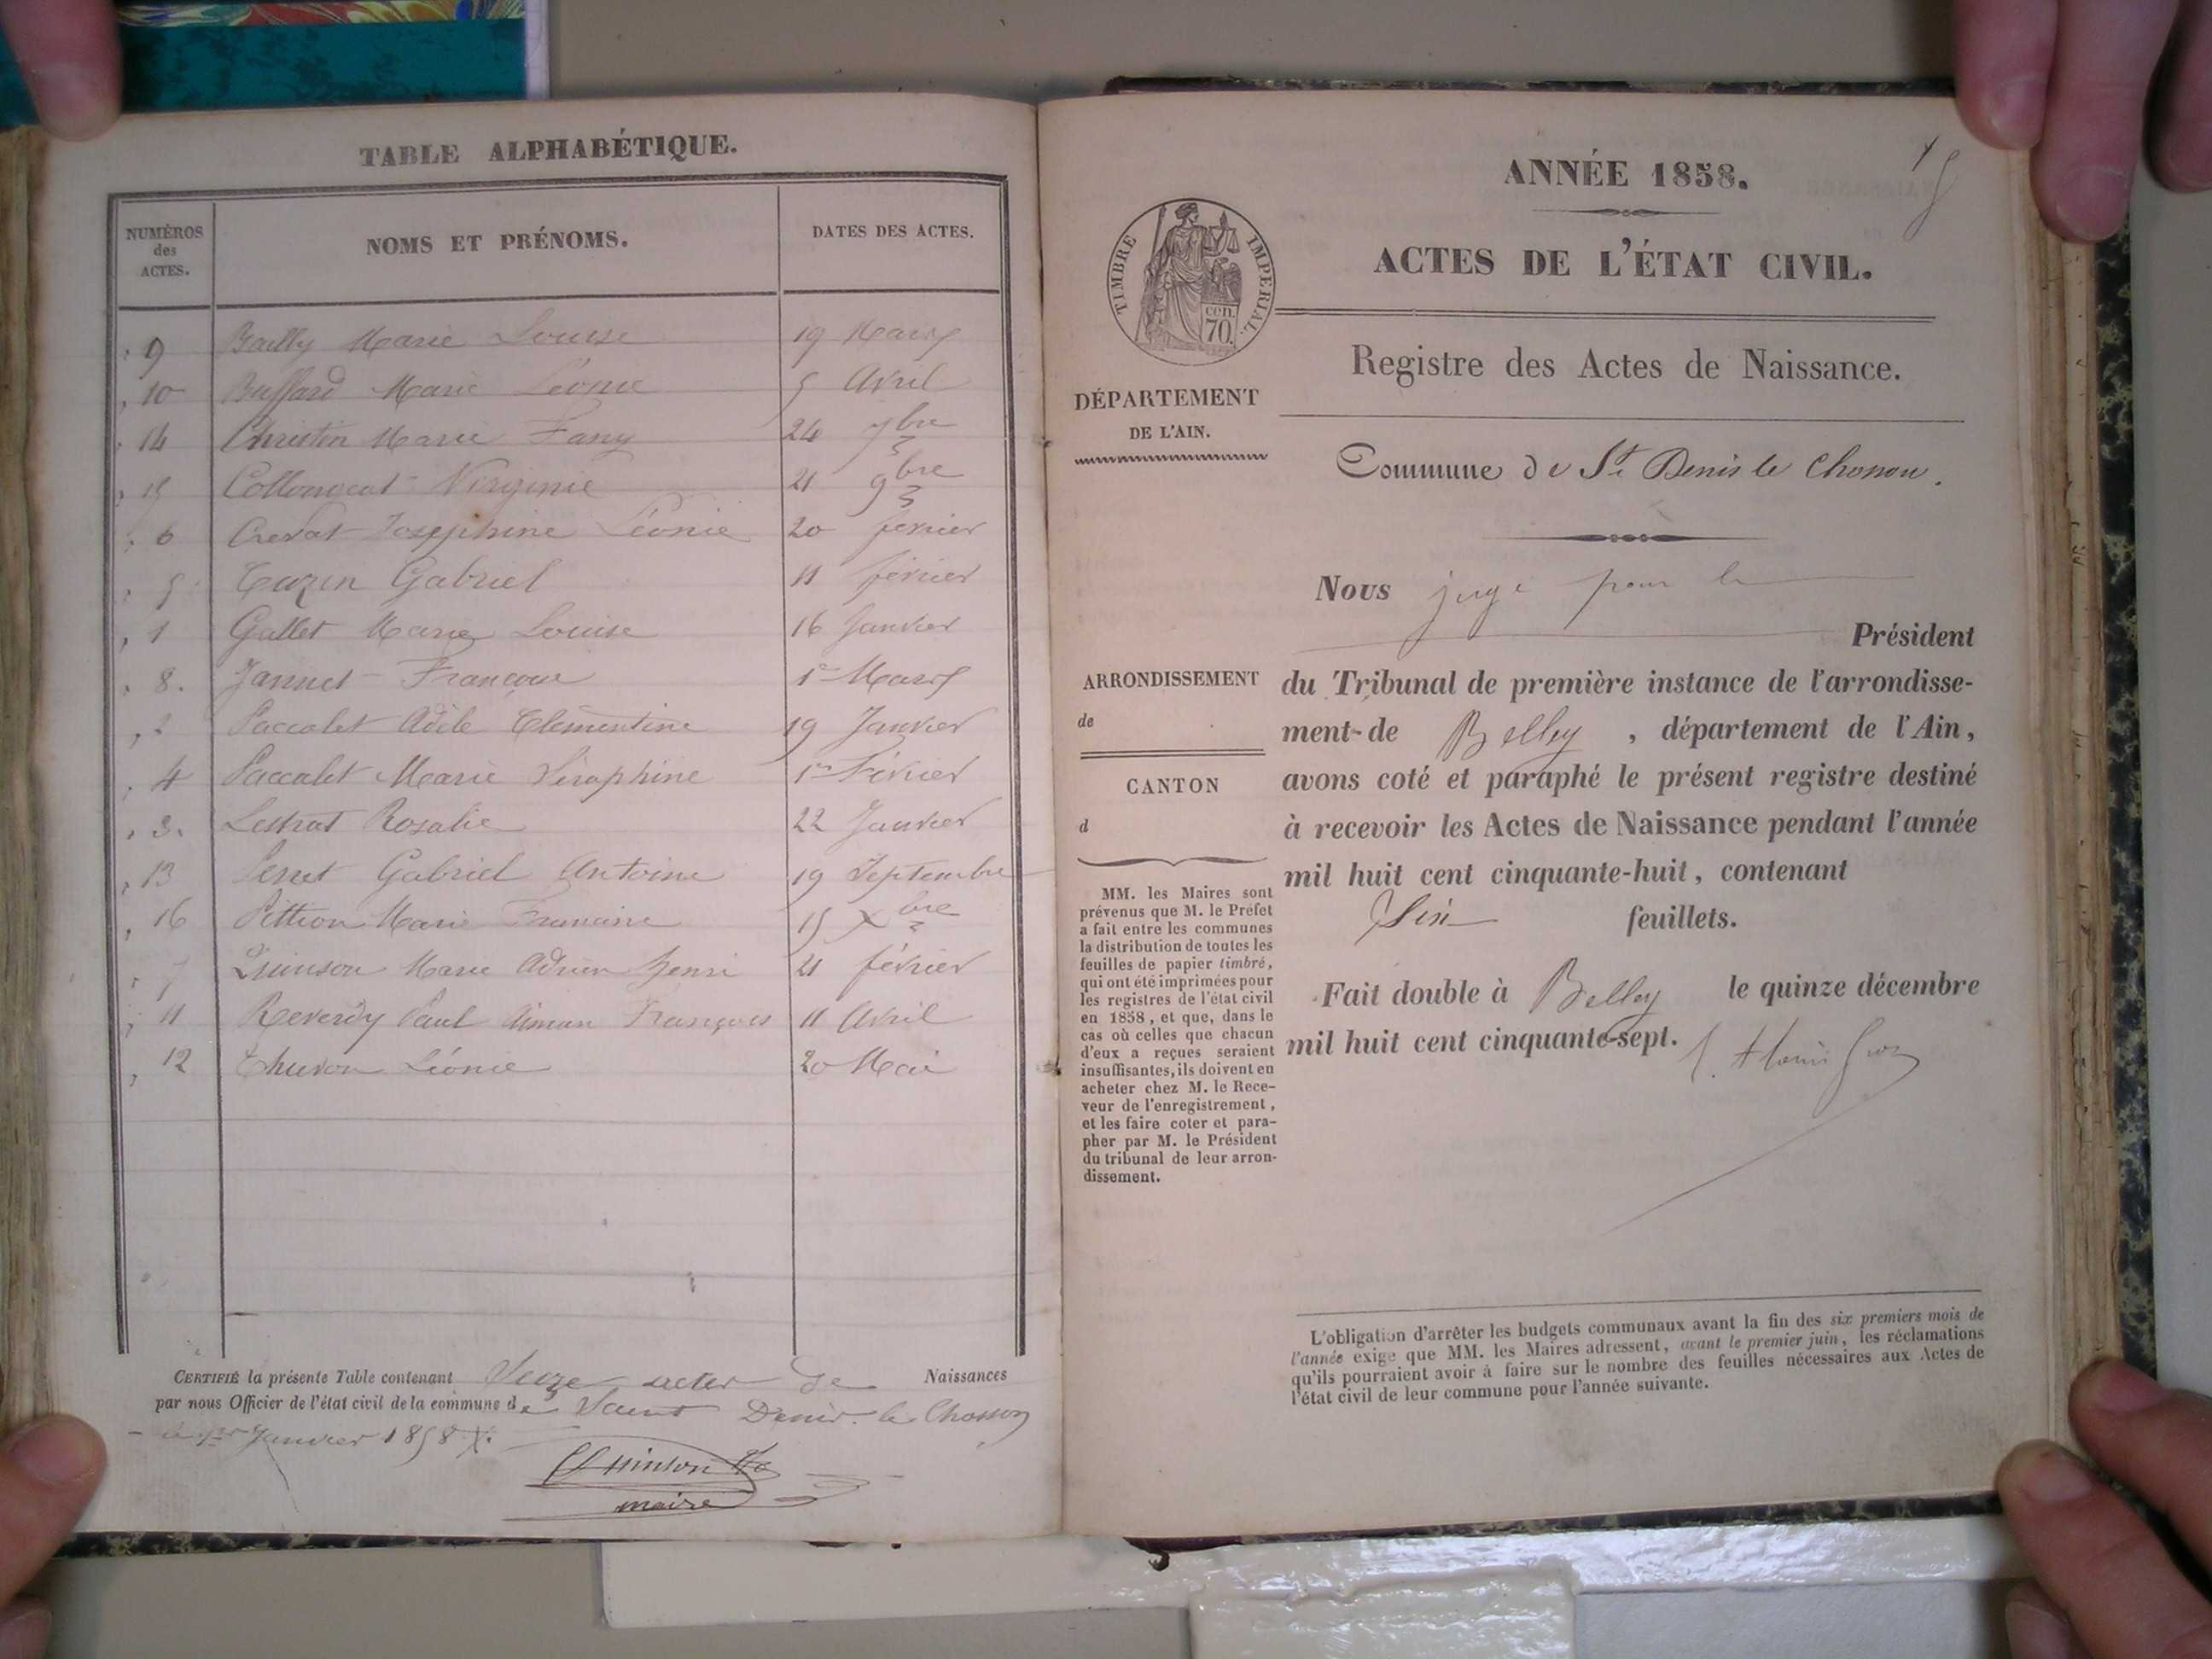 TABLE ALPHABÉTIQUE.
NUMÉROS des ACTES.
NOMS ET PRÉNOMS.
DATES DES ACTES.
9 Bailly Marie Louise 19 Mars
10 Buffard Marie Léonie 5 Avril
14 Christin Marie Fany 24 7bre
15 Virginie 21 9bre
6 Crevat Joséphine Léonie 20 février
5 Cuzin Gabriel 11 février
1 Gallet Marie Louise 16 Janvier
8. Jannet 1er Mars
2 Paccalet Adèle Clémentine 19 Janvier
4 Paccalet Marie Séraphine 1er Février
3. Lestrat Rosalie 22 Janvier
13 Gabriel Antoine 19 Septembre
16 Pittion Marie 15 Xbre
7 Quinson Marie Adrien Henri 21 février
11 Reverdy Paul François 11 Avril
12 Léonie 20 Mai
CERTIFIÉ la présente Table contenant Seize actes de Naissances
par nous Officier de l'état civil de la commune de Saint Denis le Chosson
Janvier 1858
Quinson
maire
ANNÉE 1858.
ACTES DE L'ÉTAT CIVIL.
TIMBRE IMPÉRIAL.
cen.
70.
Registre des Actes de Naissance.
DÉPARTEMENT
DE L'AIN.
Commune de St Denis le Chosson.
Nous juge pour le
Président
ARRONDISSEMENT
de
CANTON
d
du Tribunal de première instance de l'arrondisse-
ment de Belley, département de l'Ain,
avons coté et paraphé le présent registre destiné
à recevoir les Actes de Naissance pendant l'année
mil huit cent cinquante-huit, contenant
Six feuillets.
Fait double à Belley le quinze décembre
mil huit cent cinquante-sept.
MM. les Maires sont
prévenus que M. le Préfet
a fait entre les communes
la distribution de toutes les
feuilles de papier timbré,
qui ont été imprimées pour
les registres de l'état civil
en 1858, et que, dans le
cas où celles que chacun
d'eux a reçues seraient
insuffisantes, ils doivent en
acheter chez M. le Rece-
veur de l'enregistrement,
et les faire coter et para-
pher par M. le Président
du tribunal de leur arron-
dissement.
L'obligation d'arrêter les budgets communaux avant la fin des six premiers mois de
l'année exige que MM. les Maires adressent, avant le premier juin, les réclamations
qu'ils pourraient avoir à faire sur le nombre des feuilles nécessaires aux Actes de
l'état civil de leur commune pour l'année suivante.